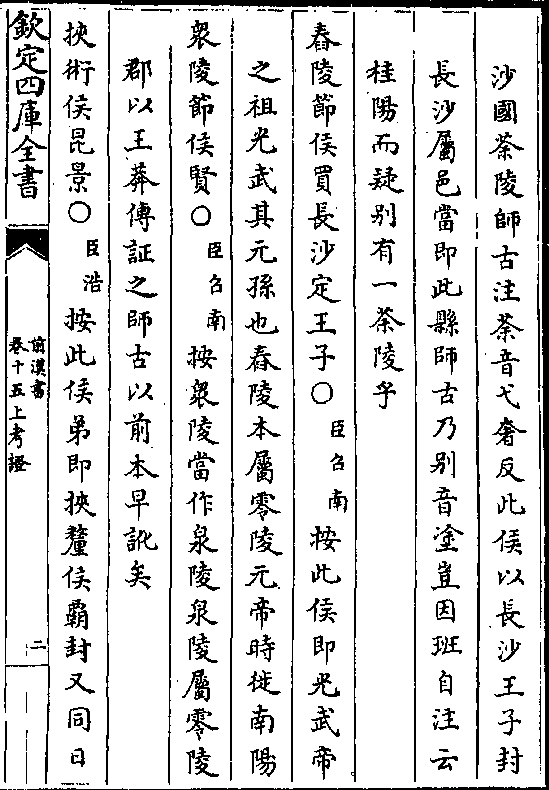 沙國荼陵師古注荼音弋奢反此侯以長沙王子封
長沙屬邑當即此縣師古乃别音塗豈因班自注云
桂陽而疑别有一荼陵乎
舂陵節侯買長沙定王子○臣召南按此侯即光武帝
之祖光武其元孫也舂陵本屬零陵元帝時徙南陽
衆陵節侯賢○臣召南按衆陵當作泉陵泉陵屬零陵
郡以王莽傳証之師古以前本早訛矣
挾術侯昆景○臣浩按此侯弟即挾釐侯霸封又同日
欽定四庫全書
前漢書
卷十五上考證
二